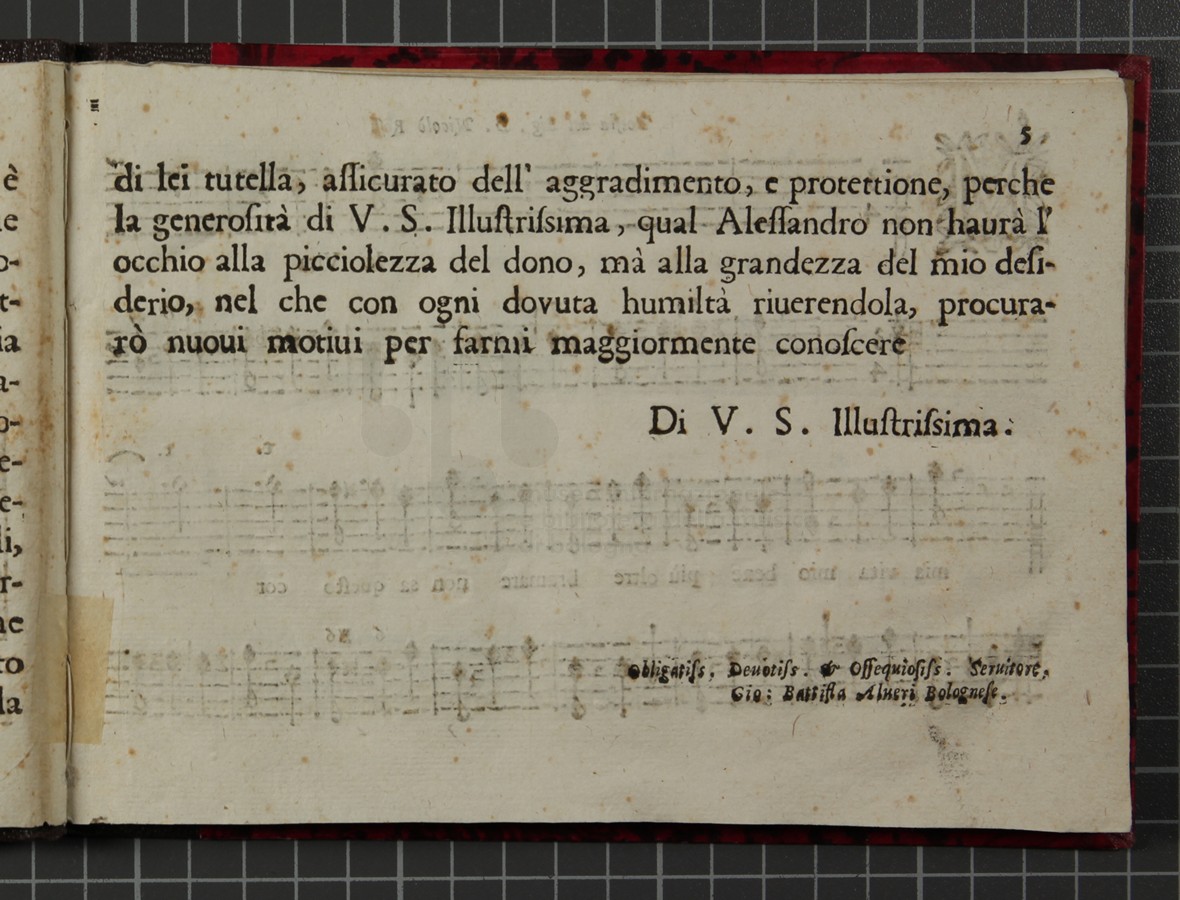 5.
di lei tutella, aſſicurato dell' aggradimento, e protettione, perche
la generoſità di V. S. Illuſtriſsima, qual Aleſſandro non haurà l'
occhio alla picciolezza del dono, mà alla grandezza del mio deſi-
derio, nel che con ogni dovuta humiltà riuerendola, procura-
rò nuoui motiui per farmi maggiormente conoſcere
Di V. S. Illuſtriſsima.
Obligatiſs, Deuotiſs. & Oſſequioſiſs. Seruitore,
Gio: Battiſta Alueri Bologneſe.
è
t-
ia
a-
e-
e-
li,
r-
to
la